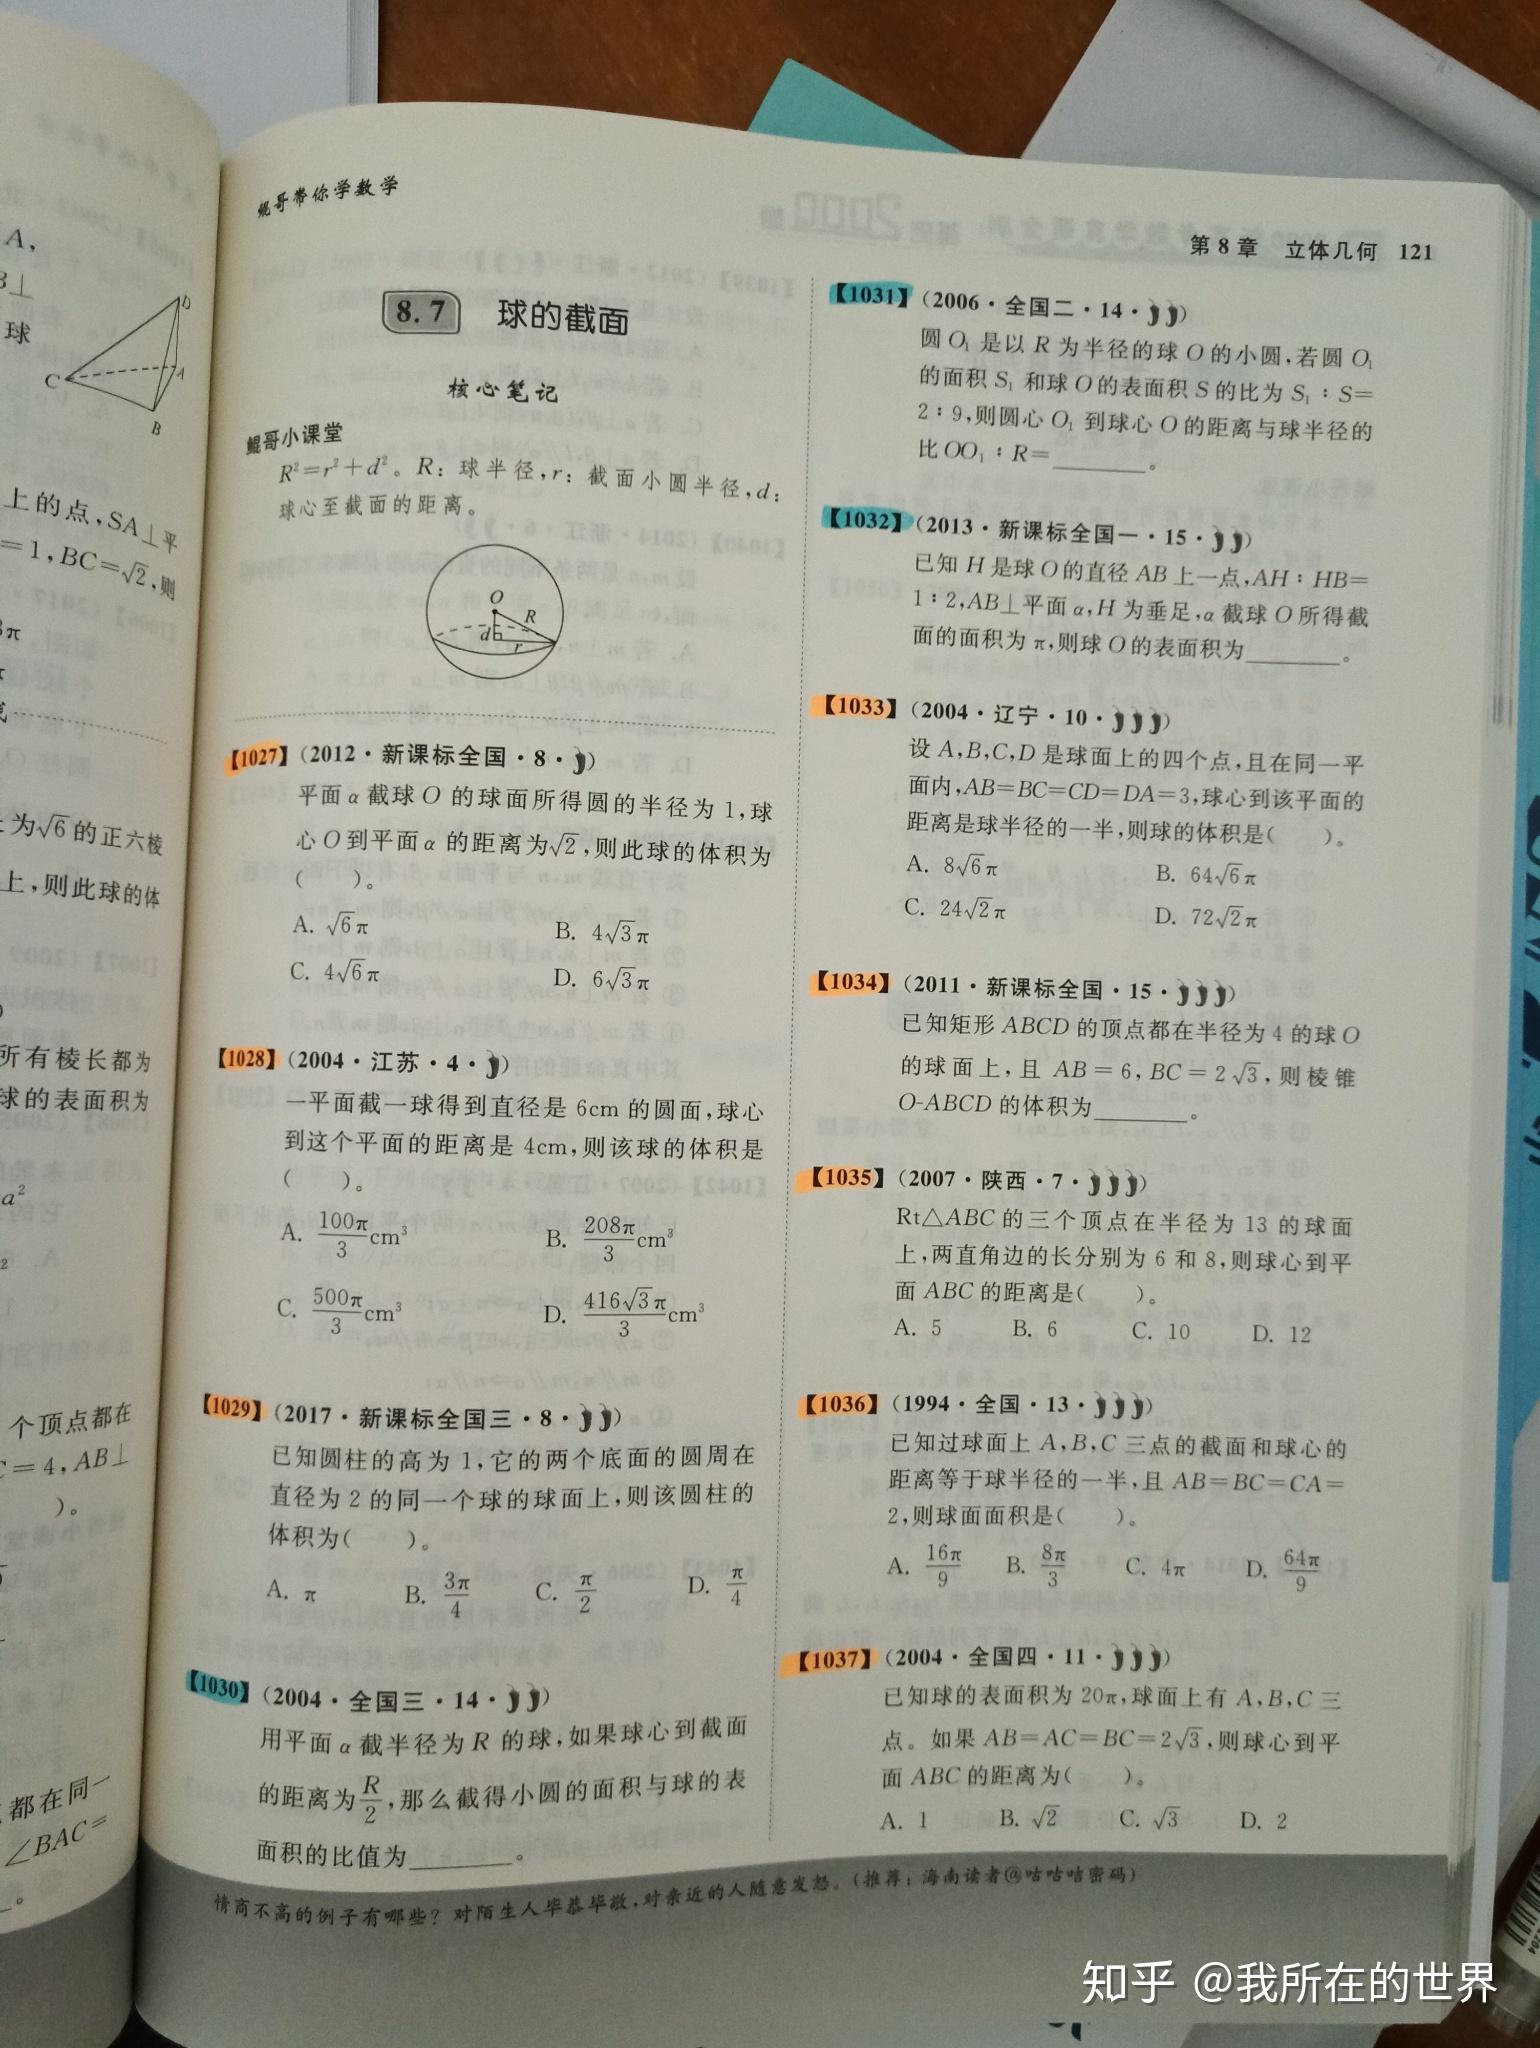 鲲哥带你学数学
第8章 立体几何 121
8.7 球的截面
核心笔记
鲲哥小课堂
R²=r²+d²。R:球半径,r:截面小圆半径,d:
球心至截面的距离。
O
R
d
r
【1027】(2012·新课标全国·8·)
平面α截球O的球面所得圆的半径为1,球
心O到平面α的距离为√2,则此球的体积为
( )。
A. √6π
B. 4√3π
C. 4√6π
D. 6√3π
【1028】(2004·江苏·4·)
一平面截一球得到直径是6cm的圆面,球心
到这个平面的距离是4cm,则该球的体积是
( )。
A. 100π/3 cm³
B. 208π/3 cm³
C. 500π/3 cm³
D. 416√3π/3 cm³
【1029】(2017·新课标全国三·8·)
已知圆柱的高为1,它的两个底面的圆周在
直径为2的同一个球的球面上,则该圆柱的
体积为( )。
A. π
B. 3π/4
C. π/2
D. π/4
【1030】(2004·全国三·14·)
用平面α截半径为R的球,如果球心到截面
的距离为R/2,那么截得小圆的面积与球的表
面积的比值为________。
【1031】(2006·全国二·14·)
圆O₁是以R为半径的球O的小圆,若圆O₁
的面积S₁和球O的表面积S的比为S₁:S=
2:9,则圆心O₁到球心O的距离与球半径的
比OO₁:R=________。
【1032】(2013·新课标全国一·15·)
已知H是球O的直径AB上一点,AH:HB=
1:2,AB⊥平面α,H为垂足,α截球O所得截
面的面积为π,则球O的表面积为________。
【1033】(2004·辽宁·10·)
设A,B,C,D是球面上的四个点,且在同一平
面内,AB=BC=CD=DA=3,球心到该平面的
距离是球半径的一半,则球的体积是( )。
A. 8√6π
B. 64√6π
C. 24√2π
D. 72√2π
【1034】(2011·新课标全国·15·)
已知矩形ABCD的顶点都在半径为4的球O
的球面上,且AB=6,BC=2√3,则棱锥
O-ABCD的体积为________。
【1035】(2007·陕西·7·)
Rt△ABC的三个顶点在半径为13的球面
上,两直角边的长分别为6和8,则球心到平
面ABC的距离是( )。
A. 5 B. 6 C. 10 D. 12
【1036】(1994·全国·13·)
已知过球面上A,B,C三点的截面和球心的
距离等于球半径的一半,且AB=BC=CA=
2,则球面面积是( )。
A. 16π/9 B. 8π/3 C. 4π D. 64π/9
【1037】(2004·全国四·11·)
已知球的表面积为20π,球面上有A,B,C三
点。如果AB=AC=BC=2√3,则球心到平
面ABC的距离为( )。
A. 1 B. √2 C. √3 D. 2
情商不高的例子有哪些?对陌生人毕恭毕敬,对亲近的人随意发怒。(推荐:海南读者@咕咕咕密码)
A,
B⊥
球
D
C
A
B
上的点,SA⊥平
=1,BC=√2,则
为√6的正六棱
上,则此球的体
所有棱长都为
球的表面积为
a²
个顶点都在
C=4,AB⊥
)。
都在同一
∠BAC=
知乎 @我所在的世界